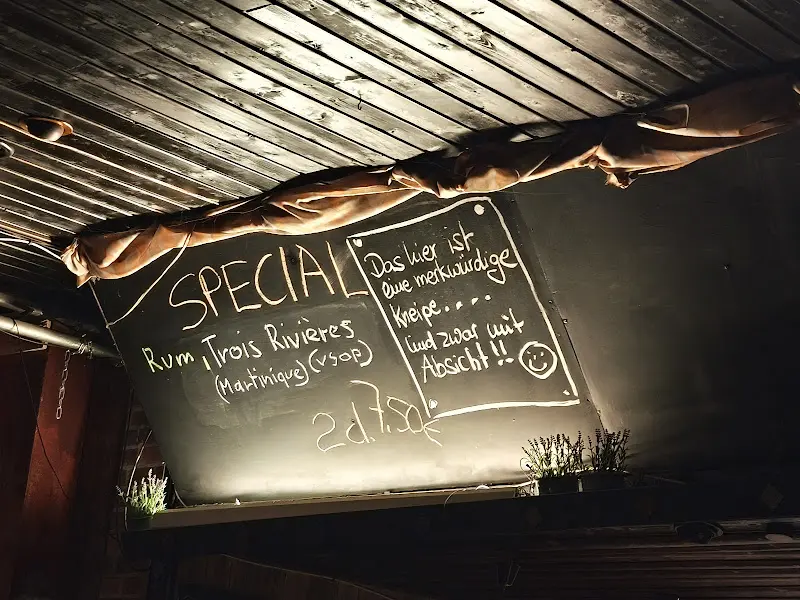 SPECIAL
Rum, Trois Rivières
(Martinique) (VSOP)
2cl. 7,50€
Das hier ist
eine merkwürdige
Kneipe....
und zwar mit
Absicht!!